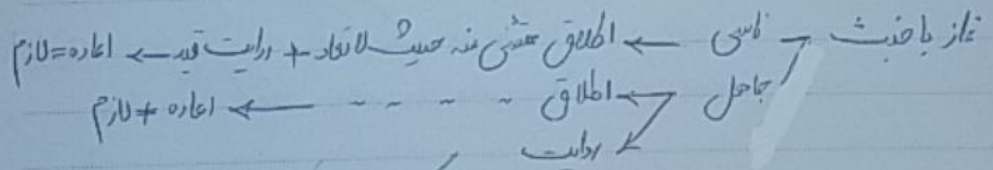 نماز با خبث → ناسی ← اطلاق عقد مستثنی منه حدیث لاتعاد + روایت قید ← اعاده = لازم
جاهل ← اطلاق ~ ~ ~ ~ ← اعاده ≠ لازم
روایت